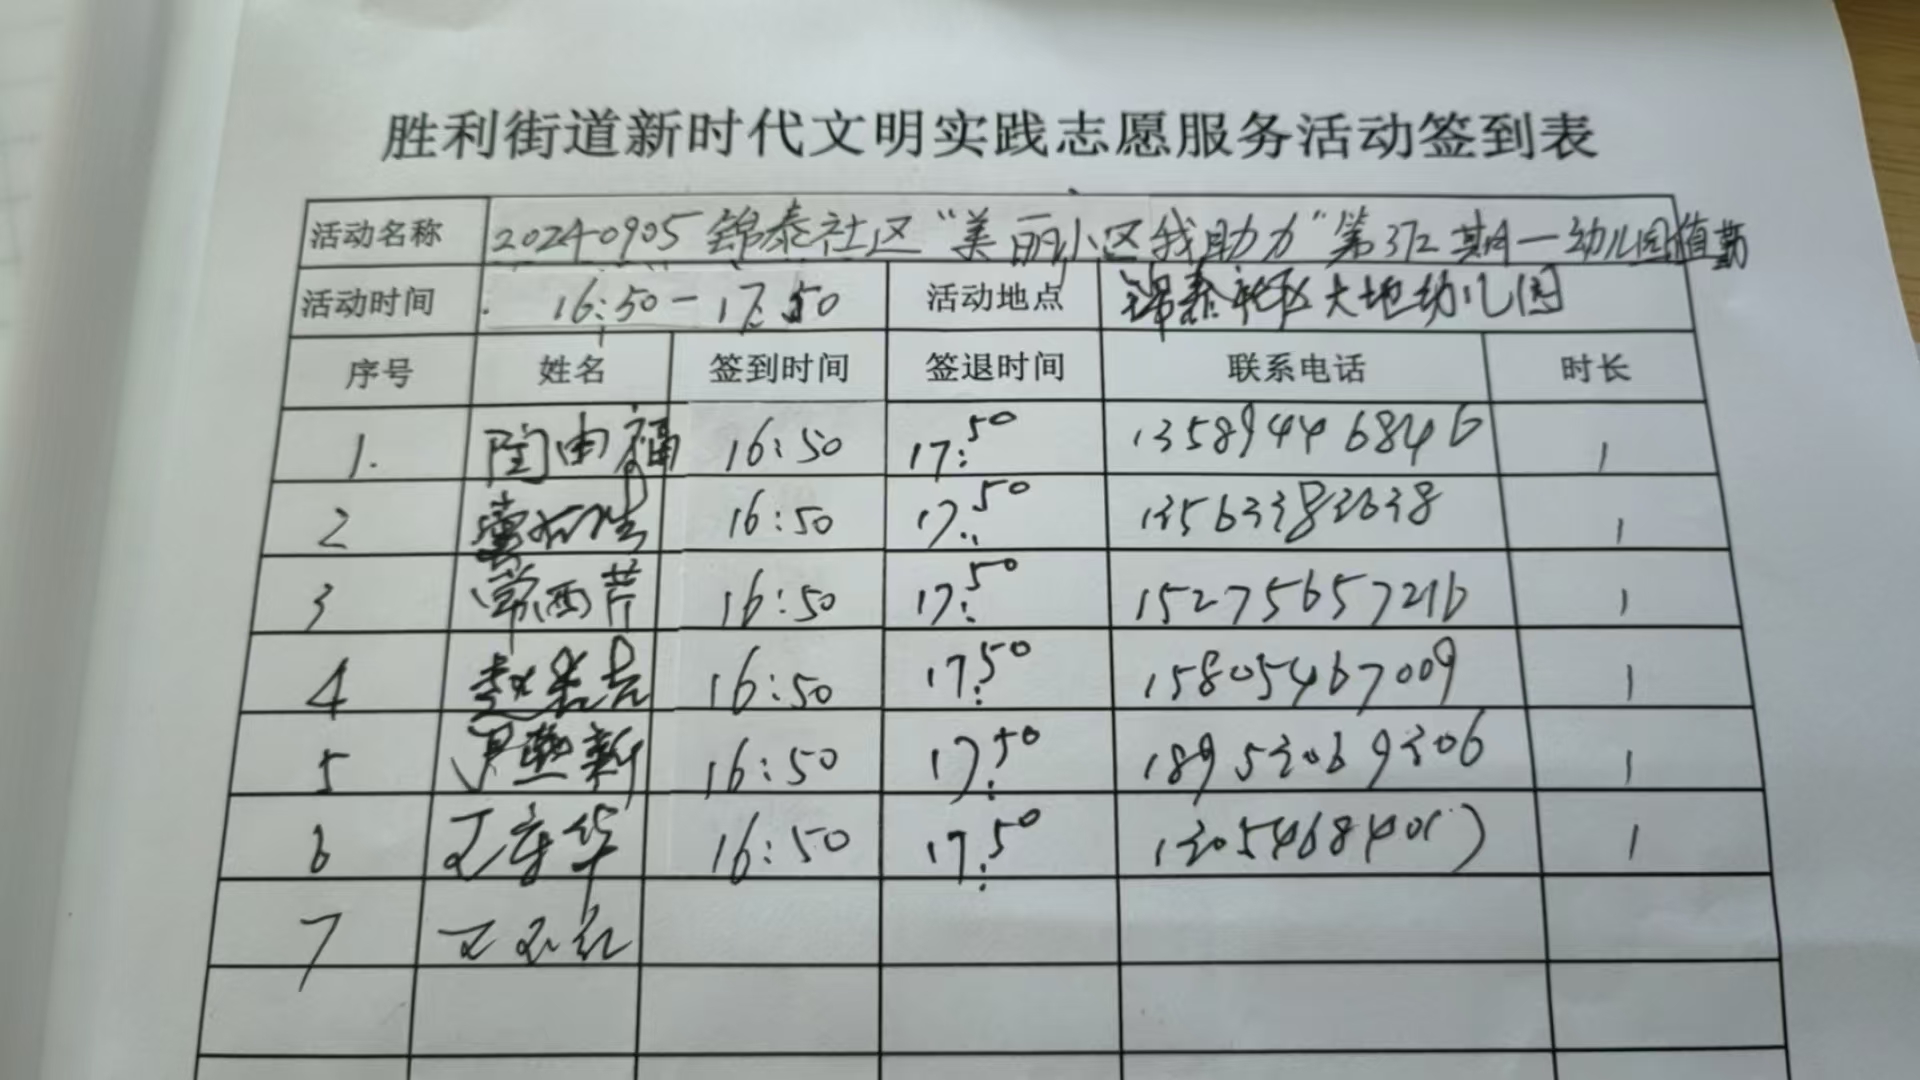 胜利街道新时代文明实践志愿服务活动签到表
活动名称 20240905锦泰社区“美丽小区我助力”第372期—幼儿园值勤
活动时间 16:50-17:50 活动地点 锦泰社区大地幼儿园
序号 姓名 签到时间 签退时间 联系电话 时长
1. 闫由福 16:50 17:50 13589446846 1
2 16:50 17:50 13563382638 1
3 常西芹 16:50 17:50 15275657216 1
4 赵 16:50 17:50 15805467009 1
5 尹勤新 16:50 17:50 18953069306 1
6 王春华 16:50 17:50 1
7 王玉红